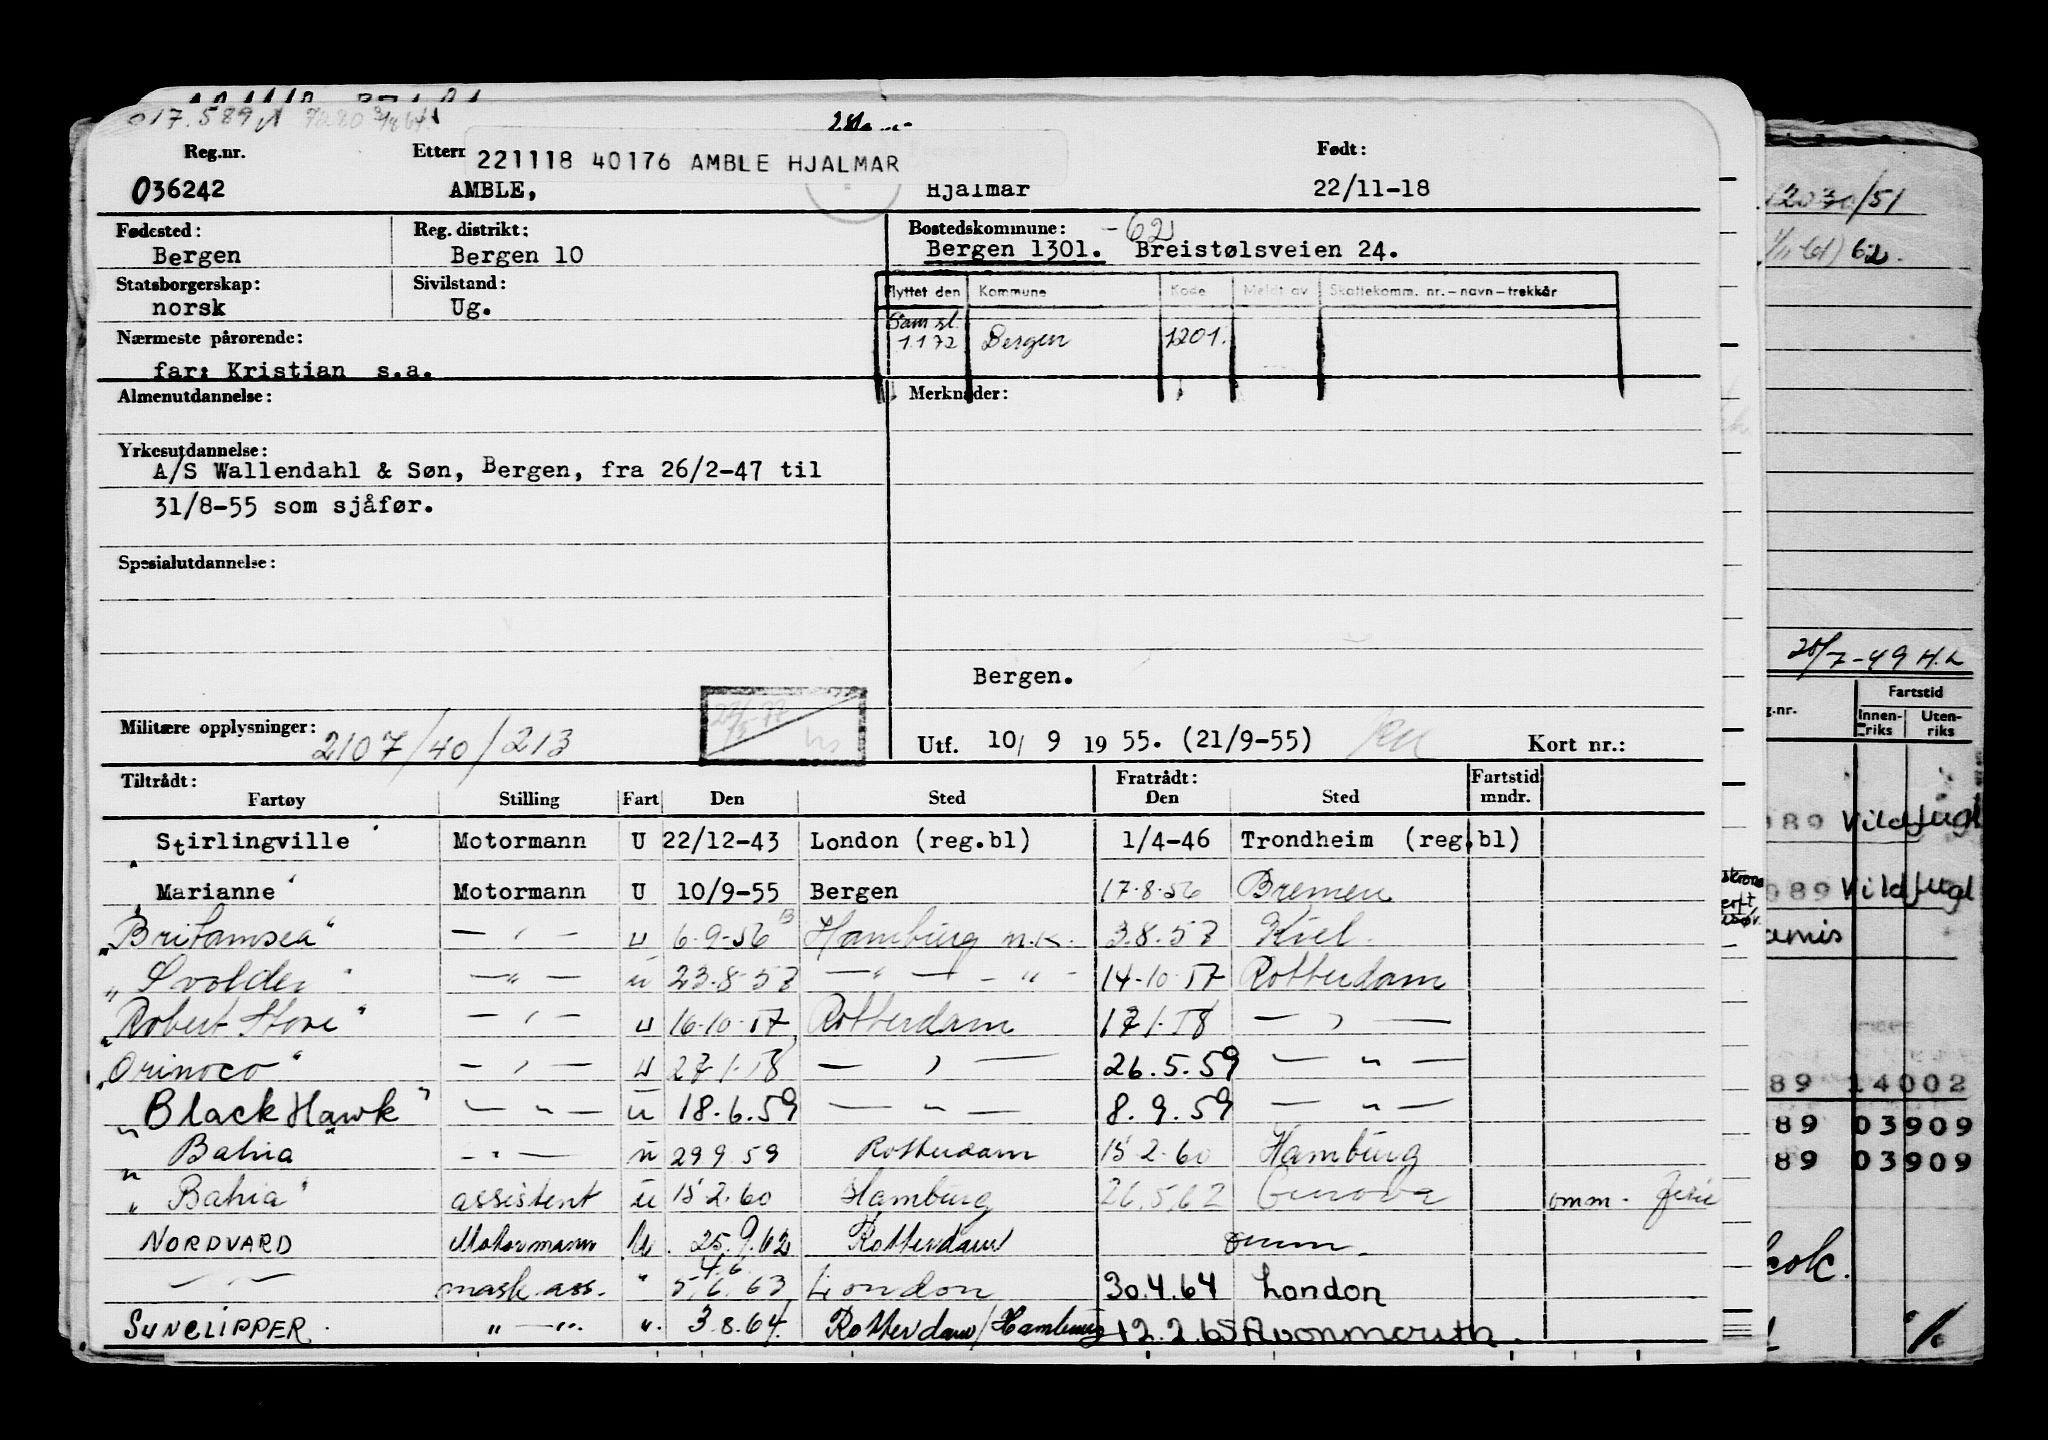 017.589
Reg.nr. Etterr 221118 40176 AMBLE HJALMAR Født:
036242 AMBLE, Hjalmar 22/11-18
Fødested: Reg. distrikt: Bostedskommune: -62
Bergen Bergen 10 Bergen 1301. Breistølsveien 24.
Statsborgerskap: Sivilstand: Flyttet den Kommune Kode Meldt av Skattekomm. nr.-navn-trekkår
norsk Ug.
Nærmeste pårørende: Sam sl. 1.1 72 Bergen 1201.
far: Kristian s.a.
Almenutdannelse: Merknader:
Yrkesutdannelse:
A/S Wallendahl & Søn, Bergen, fra 26/2-47 til
31/8-55 som sjåfør.
Spesialutdannelse:
Bergen.
Militære opplysninger: 2107/40/213 Utf. 10/ 9 19 55. (21/9-55) Kort nr.:
Tiltrådt: Fratrådt: Fartstid
Fartøy Stilling Fart Den Sted Den Sted mndr.
Stirlingville Motormann U 22/12-43 London (reg.bl) 1/4-46 Trondheim (reg.bl)
Marianne Motormann U 10/9-55 Bergen 17.8.56 Bremen
"Britamsea" — " — u 6.9.56 Hamburg m.k. 3.8.57 Kiel.
"Svolder" — " — u 23.8.57 — " — - " - 14.10.57 Rotterdam
"Robert Stove" — " — u 16.10.57 Rotterdam 17.1.58 — " —
"Orinoco" — " — u 27.1.58 — " — 26.5.59 — " —
"Black Hawk" — " — u 18.6.59 — " — 8.9.59 — " —
" Bahia - " — u 29.9.59 Rotterdam 15.2.60 Hamburg
"Bahia" assistent u 15.2.60 Hamburg 26.5.62 Genova omm.
NORDVARD Motormann U. 25.9.62 Rotterdam omm.
— " — mask. ass. " 5.6.63 London 30.4.64 London
SUNCLIPPER. " — ". ". 3.8.64. Rotterdam/Hamburg 12.2.65 Avonmouth.
12030/51
62.
20/7-49 H.L
Fartstid
g.nr. Innen-riks Uten-riks
089 Vildfugl
089 Vildfugl
amis
89 14002
89 03909
89 03909
kok.